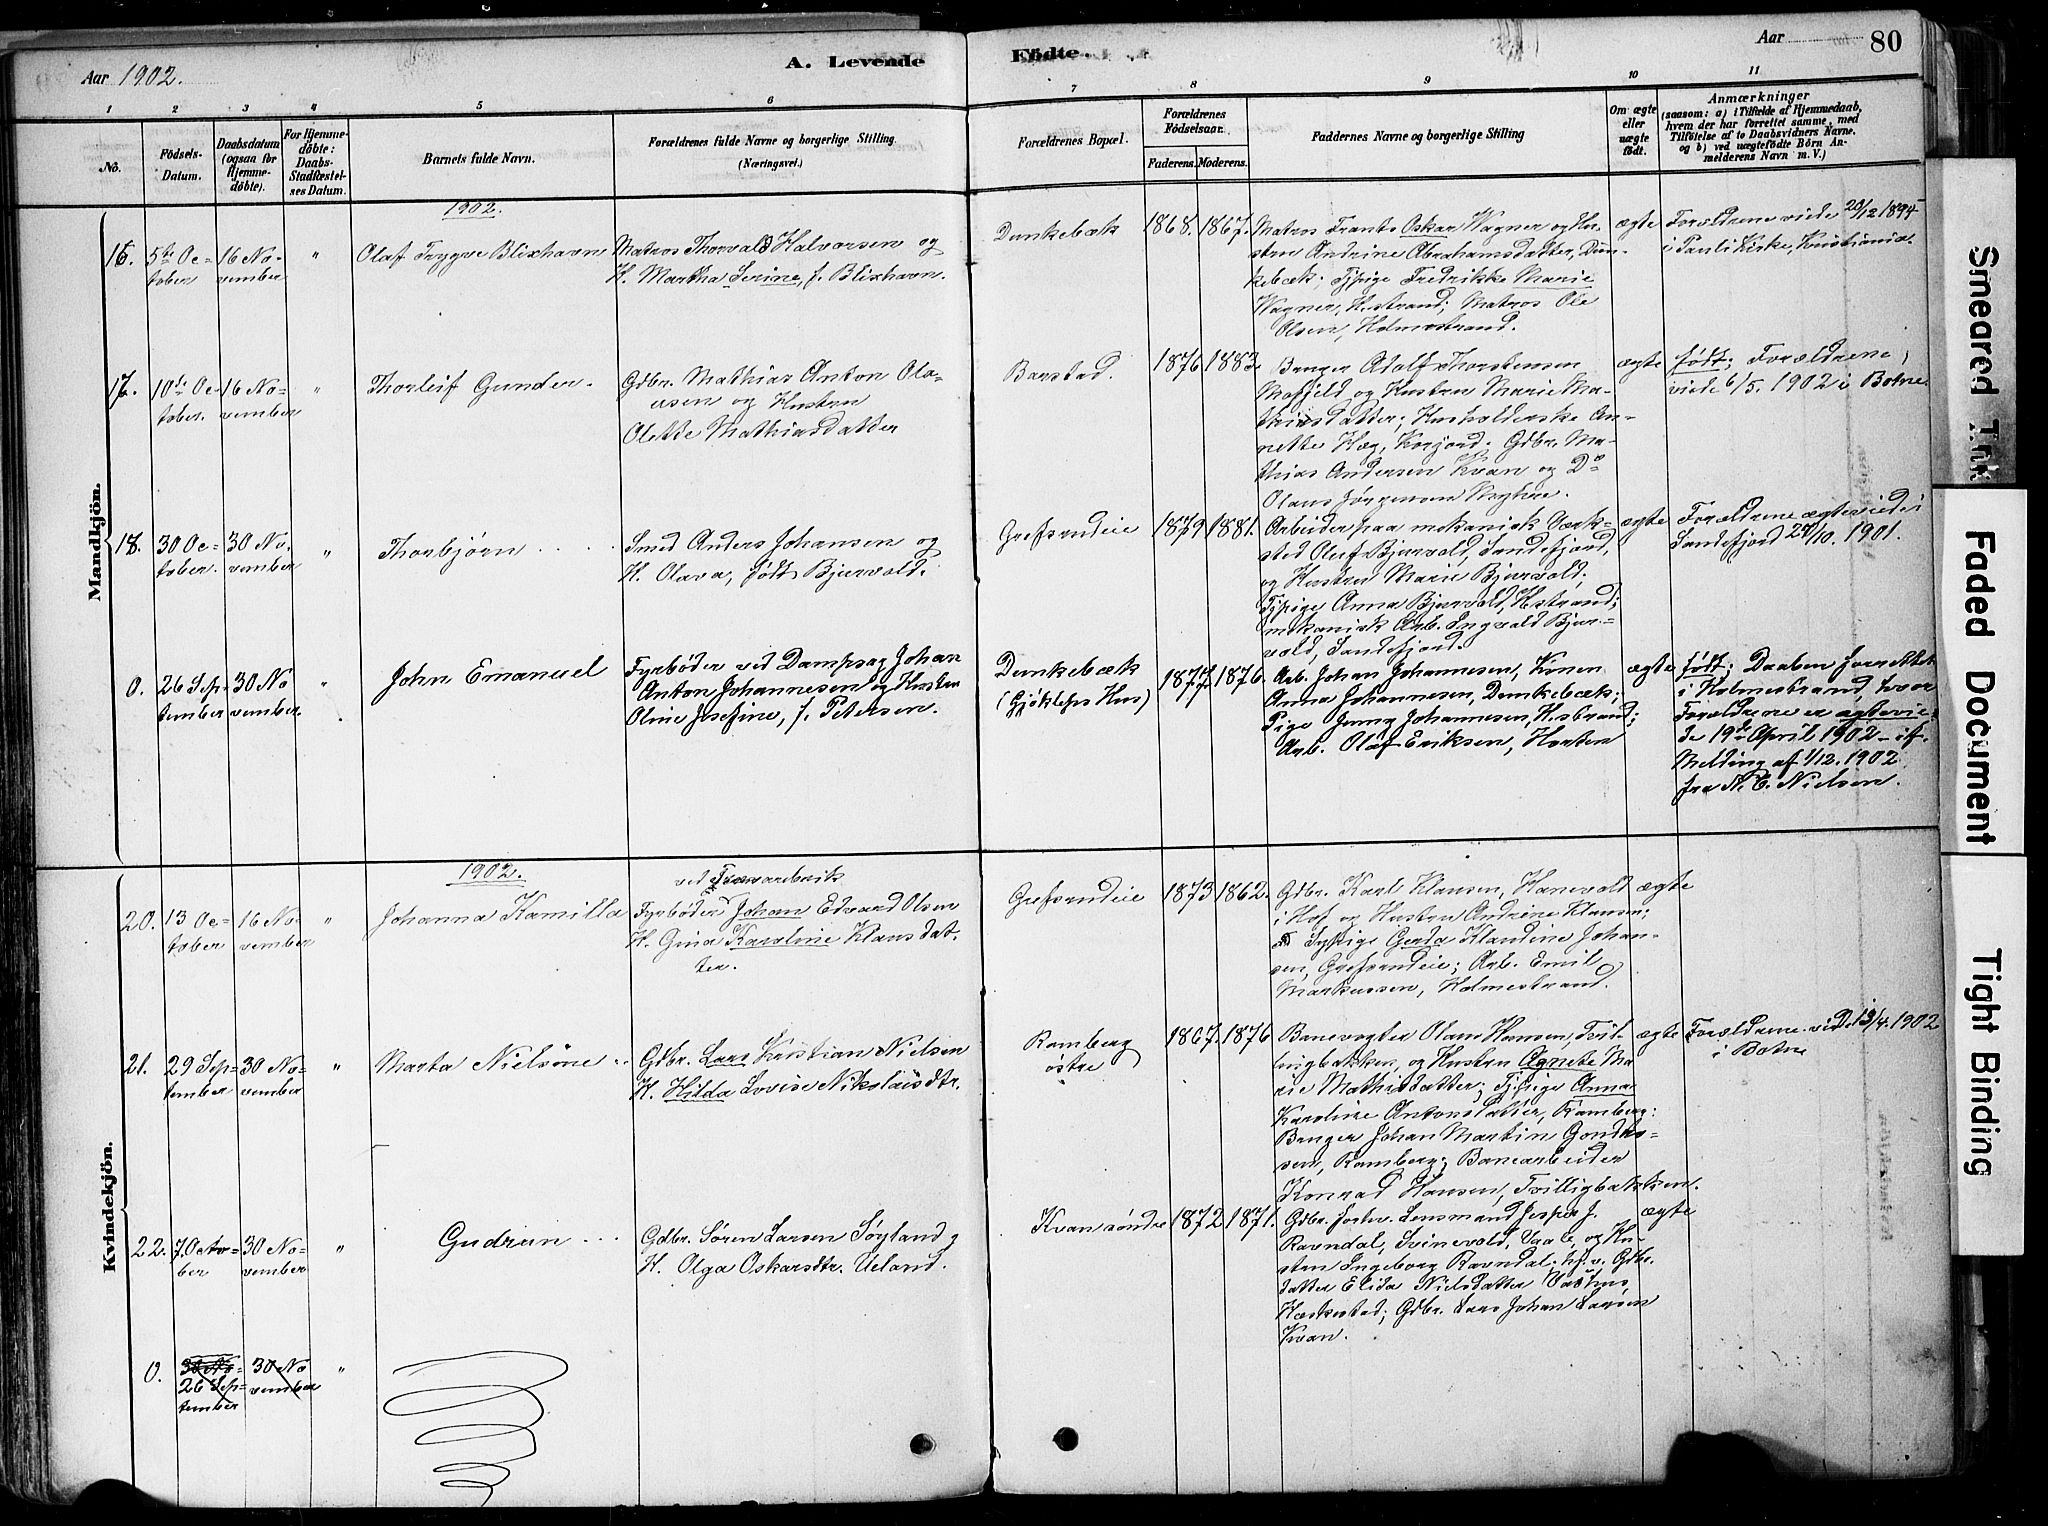 Aar 1902.
A. Levende
Födte.
Aar
80
1
2
3
4
5
6
7
8
9
10
11
No.
Födsels-
Datum.
Daabsdatum
(ogsaa for
Hjemme-
döbte).
For Hjemme-
döbte:
Daabs-
Stadfæstel-
ses Datum.
Barnets fulde Navn.
Forældrenes fulde Navne og borgerlige Stilling
(Næringsvei.)
Forældrenes Bopæl.
Forældrenes
Födselsaar.
Faderens.
Moderens.
Faddernes Navne og borgerlige Stilling
Om ægte
eller
uægte
født.
Anmærkninger
(saasom: a) i Tilfælde af Hjemmedaab,
hvem der har forrettet samme, med
Tilföielse af to Daabsvidners Navne.
og b) ved uægtefödte Börn An-
melderens Navn m. V.)
Mandkjön.
1902.
16.
5te Oc-
tober
16 No-
vember
"
Olaf Trygve Blixhavn
Matros Thorvald Halvorsen og
H. Martha Serine, f. Blixhavn.
Dunkebæk
1868.
1867.
Matros Frants Oskar Wagner og Hu-
stru Andrine Abrahamsdatter, Dun-
kebæk; Tjpige Fredrikke Marie
Wagner, H.strand; Matros Ole
Olsen, Holmestrand.
ægte
Forældrene viede 20/12 1894
i Pauli Kirke, Kristiania.
17.
10de Oc-
tober.
16 No-
vember
"
Thorleif Gunder.
Gdbr. Mathias Anton Ola-
ersen og Hustru
Olette Mathiasdatter
Barstad.
1876
1883
Bruger Adolf Thorstensen
Mofjeld og Hustru Marie Ma-
thiasdatter; Husholderske An-
nette Hæg, Korjord; Gdbr. Ma-
thias Andersen Kvan og Do
Olaus Jørgensen
ægte
født; Forældrene
viede 6/5. 1902 i Botne
18.
30 Oc-
tober.
30 No-
vember
"
Thorbjørn
Smed Anders Johansen og
H. Olava, født Bjurvold.
Grefsrudeie
1879
1881.
Arbeider paa mekanisk Værk-
sted Olaf Bjurvold, Sandefjord,
og Hustru Marie Bjurvold;
Tjpige Anna Bjurvold, H.strand;
mekanisk Arb. Ingvald Bjur-
vold, Sandefjord.
ægte
Forældrene ægteviede i
Sandefjord 27/10. 1901.
0.
26 Sep-
tember
30 No
vember.
"
John Emanuel
Fyrbøder ved Dampsag Johan
Anton Johannesen og Hustru
Oline Josefine, f. Petersen.
Dunkebæk
(Gjøkleps Hus)
1877.
1876.
Arb. Johan Johannesen, Konen
Anna Johannesen, Dunkebæk;
Pige Jenny Johannesen, H.strand;
Arb. Olaf Eriksen, Horten
ægte
født; Daaben forrettet
i Holmestrand, hvor
Forældrene er ægtevie-
de 19de April 1902 - if.
Melding af 1/12. 1902
fra N. C. Nielsen.
Kvindekjön.
1902.
20.
13 Oc-
tober
16 No-
vember
"
Johanna Kamilla
ved Trævarebrik
Fyrbøder Johan Edvard Olsen
H. Gina Karoline Klausdat-
ter.
Grefsrudeie
1873
1862.
Gdbr. Karl Klausen, Hanevold
i Hof og Hustru Andrine Klausen;
Sypige Gerda Klaudine Johan-
sen, Grefsrudeie; Arb. Emil
Markussen, Holmestrand.
ægte
21.
29 Sep-
tember
30 No-
vember
"
Marta Nielsine
Gdbr. Lars Kristian Nielsen
H. Hilda Lovise Nikolaisdtr.
Ramberg
østre
1867.
1876
Banevogter Olaus Hansen, Tvil-
lingbakken, og Hustru Agnete Ma-
rie Mathisdatter; Tjpige Anna
Karoline Antonsdatter, Ramberg;
Bruger Johan Martin Gunder-
sen, Ramberg; Banearbeider
Konrad Hansen, Tvilligbakken.
ægte
Forældrene viede 19/4. 1902
i Botne
22.
7. Octo-
ber
30 No-
vember
"
Gudrun
Gdbr. Søren Larsen Søyland
H. Olga Oskarsdtr. Ueland.
Kvan søndre
1872
1871.
Gdbr. forhv. Lensmand Jesper J.
Ravndal, Svinevold, Vaale, og Hu-
stru Ingeborg Ravndal; hj.v. Gdbr.
datter Elida Nielsdatter
Haskestad; Gdbr. Lars Johan Larsen
Kvan.
ægte
0.
30 No-
26 Sep-
tember
30 No
vember
"
Smeared Ink
Faded Document
Tight Binding